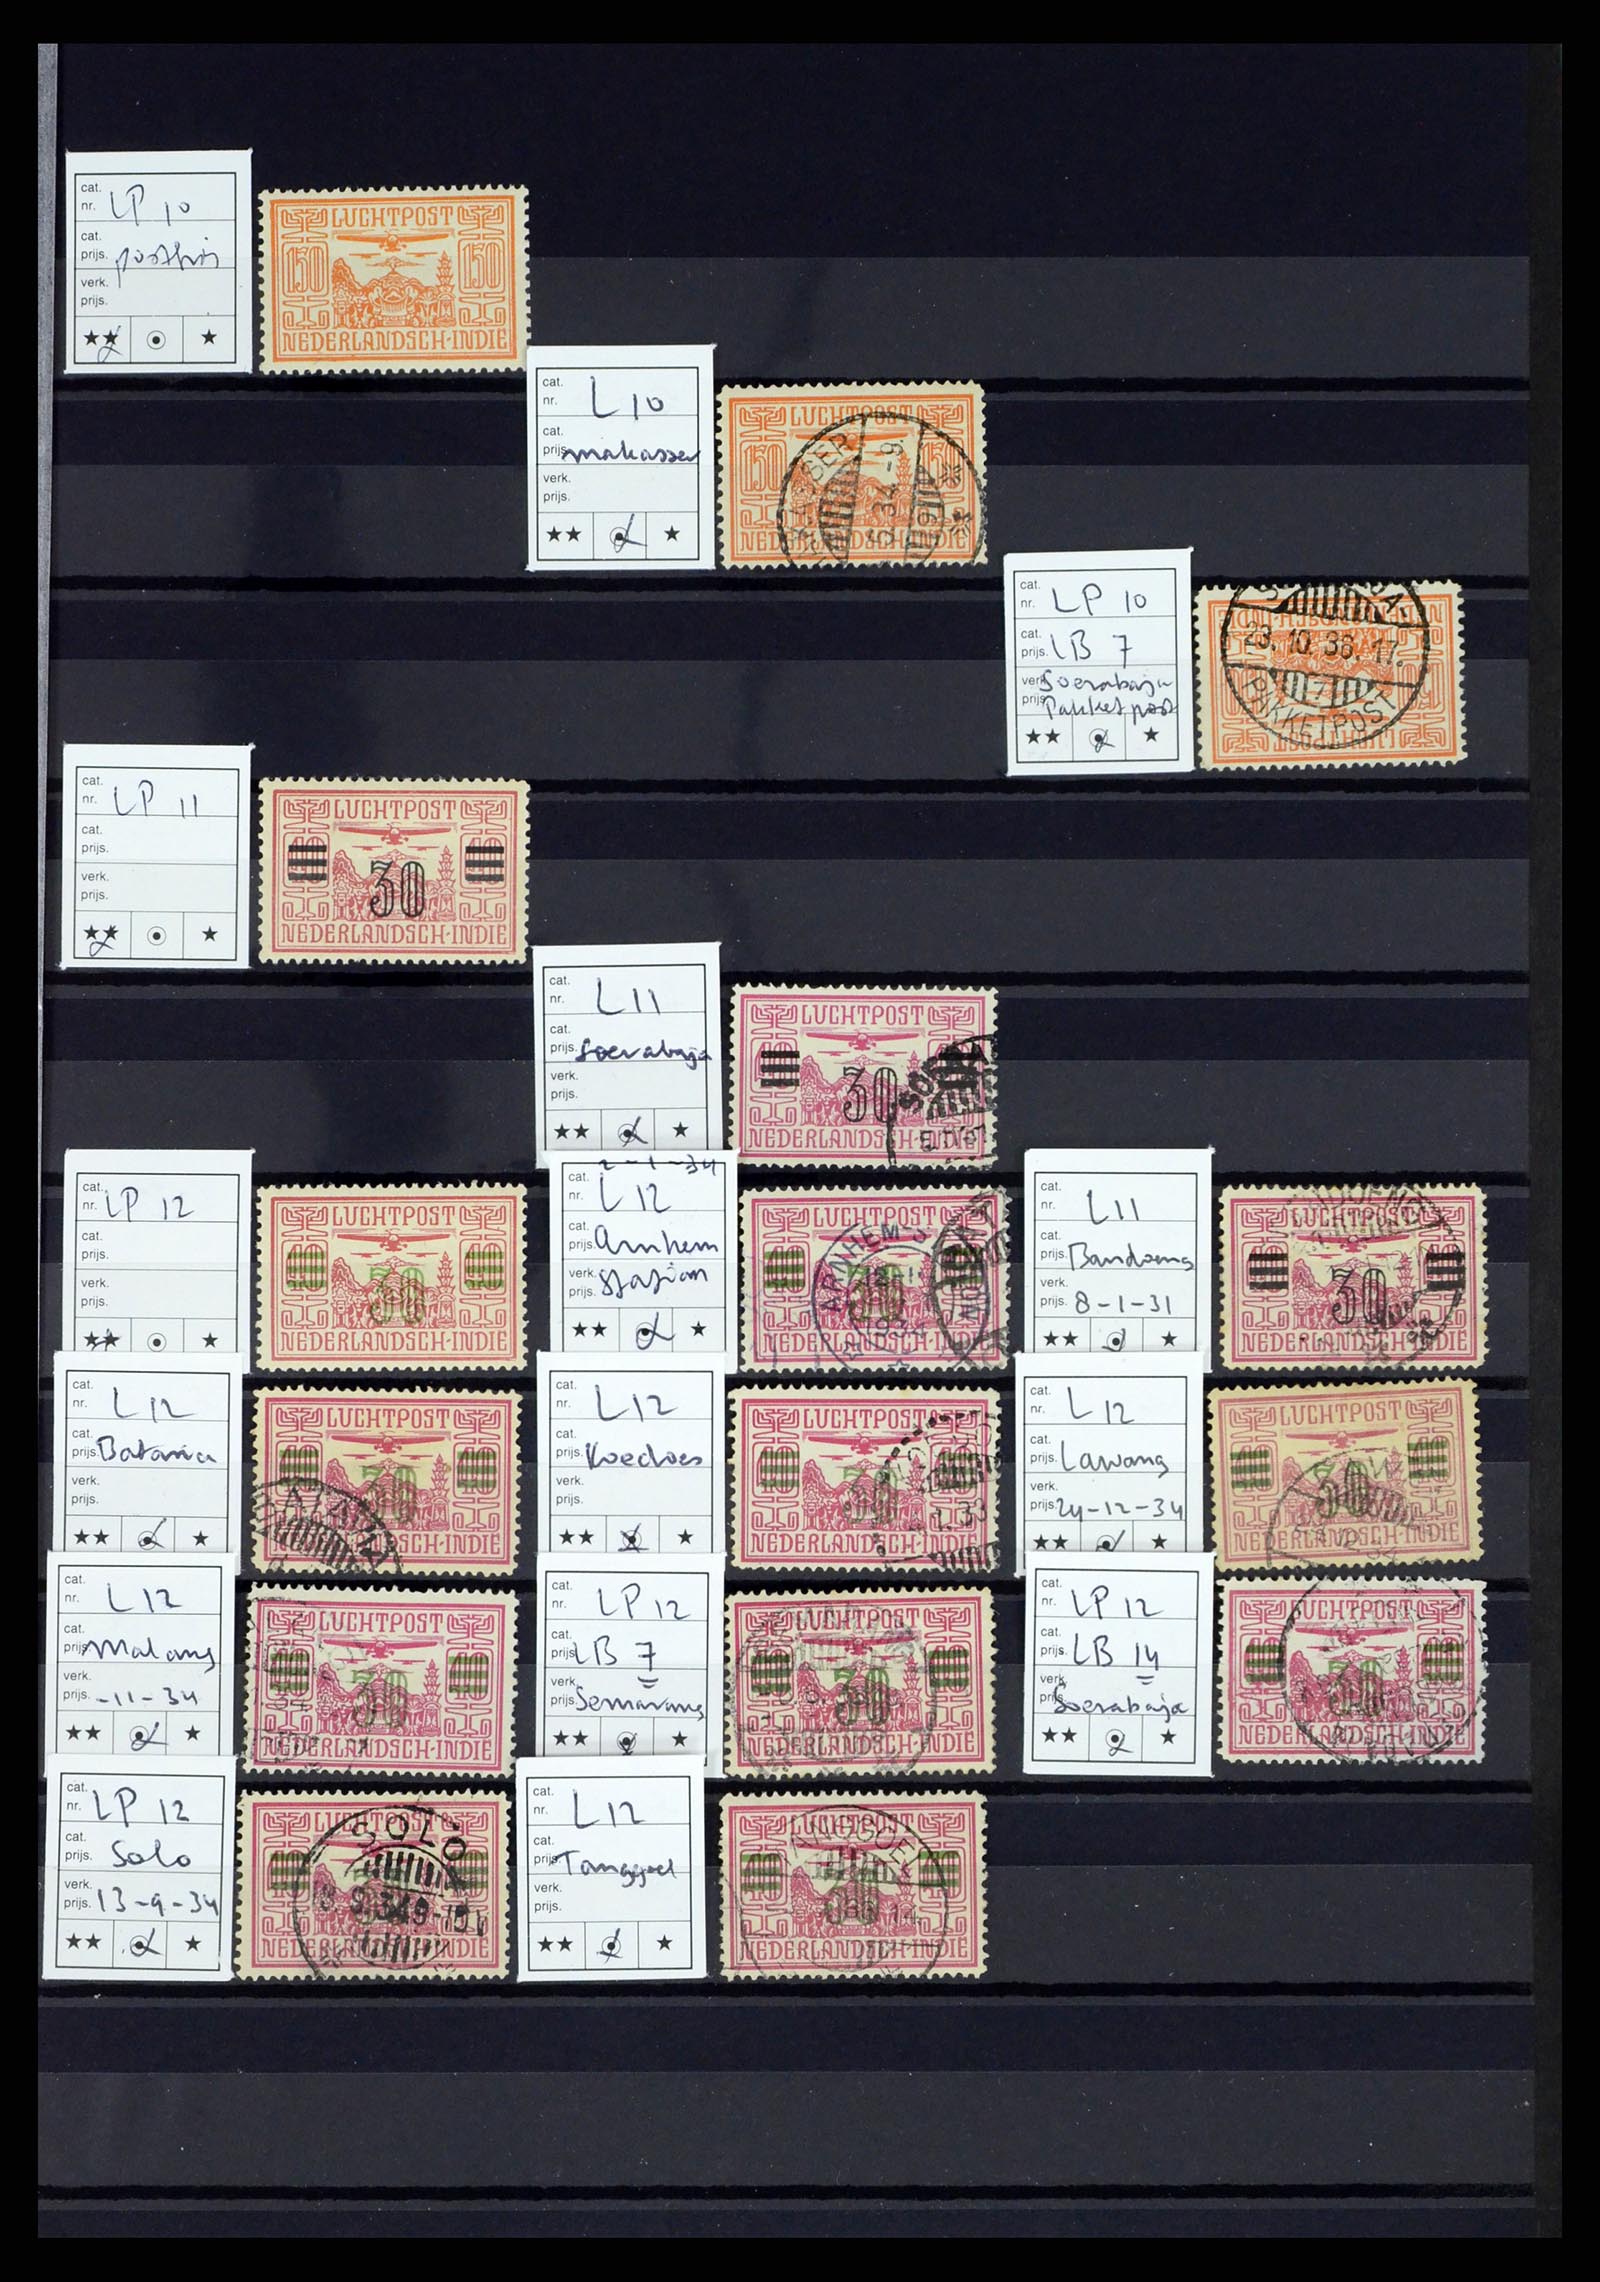 cat.
nr. LP 10
cat.
prijs. postfris
verk.
prijs.
LUCHTPOST
150 150
NEDERLANDSCH-INDIË
cat.
nr. L 10
cat.
prijs. makasser
verk.
prijs.
LUCHTPOST
150 15
NEDERLANDSCH-INDIE
ASSER
6.34.-9.
cat.
nr. LP 10
cat.
prijs. LB 7
verk. Soerabaja
prijs. Pakketpost
23.10.36.17.
7
PAKKETPOST
cat.
nr. LP 11
cat.
prijs.
verk.
prijs.
LUCHTPOST
40 40
30
NEDERLANDSCH-INDIË
cat.
nr. L 11
cat.
prijs. Soerabaja
verk.
prijs.
LUCHTPOST
30
NEDERLANDSCH-
SOERA
cat.
nr. LP 12
cat.
prijs.
verk.
prijs.
LUCHTPOST
40 40
30
NEDERLANDSCH-INDIË
2-1-34
cat.
nr. L 12
cat.
prijs. Arnhem
verk.
prijs. Station
LUCHTPOST
40
30
NEDERLANDSCH-INDIE
ARNHEM-S
1934
cat.
nr. L11
cat.
prijs. Bandoeng
verk.
prijs. 8-1-31
LUCHTPOST
30
NEDERLANDSCH-INDIE
cat.
nr. L12
cat.
prijs. Batavia
verk.
prijs.
LUCHTPOST
40 40
30
NEDERLANDSCH-INDIË
cat.
nr. L12
cat.
prijs. Koedoes
verk.
prijs.
LUCHTPOST
40 40
30
NEDERLANDSCH-INDIE
cat.
nr. L 12
cat.
prijs. Lawang
verk.
prijs. 24-12-34
LUCHTPOST
40 40
30
NEDERLANDSCH-INDIË
cat.
nr. L12
cat.
prijs. Malang
verk.
prijs. -11-34
LUCHTPOST
40 40
30
NEDERLANDSCH-INDIË
cat.
nr. LP 12
cat.
prijs. LB 7
verk.
prijs. Semarang
LUCHTPOST
40 40
30
NEDERLANDSCH-INDIË
cat.
nr. LP 12
cat.
prijs. LB 14
verk.
prijs. Soerabaja
LUCHTPOST
40 40
30
NEDERLANDSCH-INDIË
cat.
nr. LP 12
cat.
prijs. Solo
verk.
prijs. 13-9-34
LUCHTPOST
40 40
NEDERLANDSCH-INDIË
SOLO
cat.
nr. L12
cat.
prijs. Tanggoel
verk.
prijs.
LUCHTPOST
40 40
30
NEDERLANDSCH-INDIË